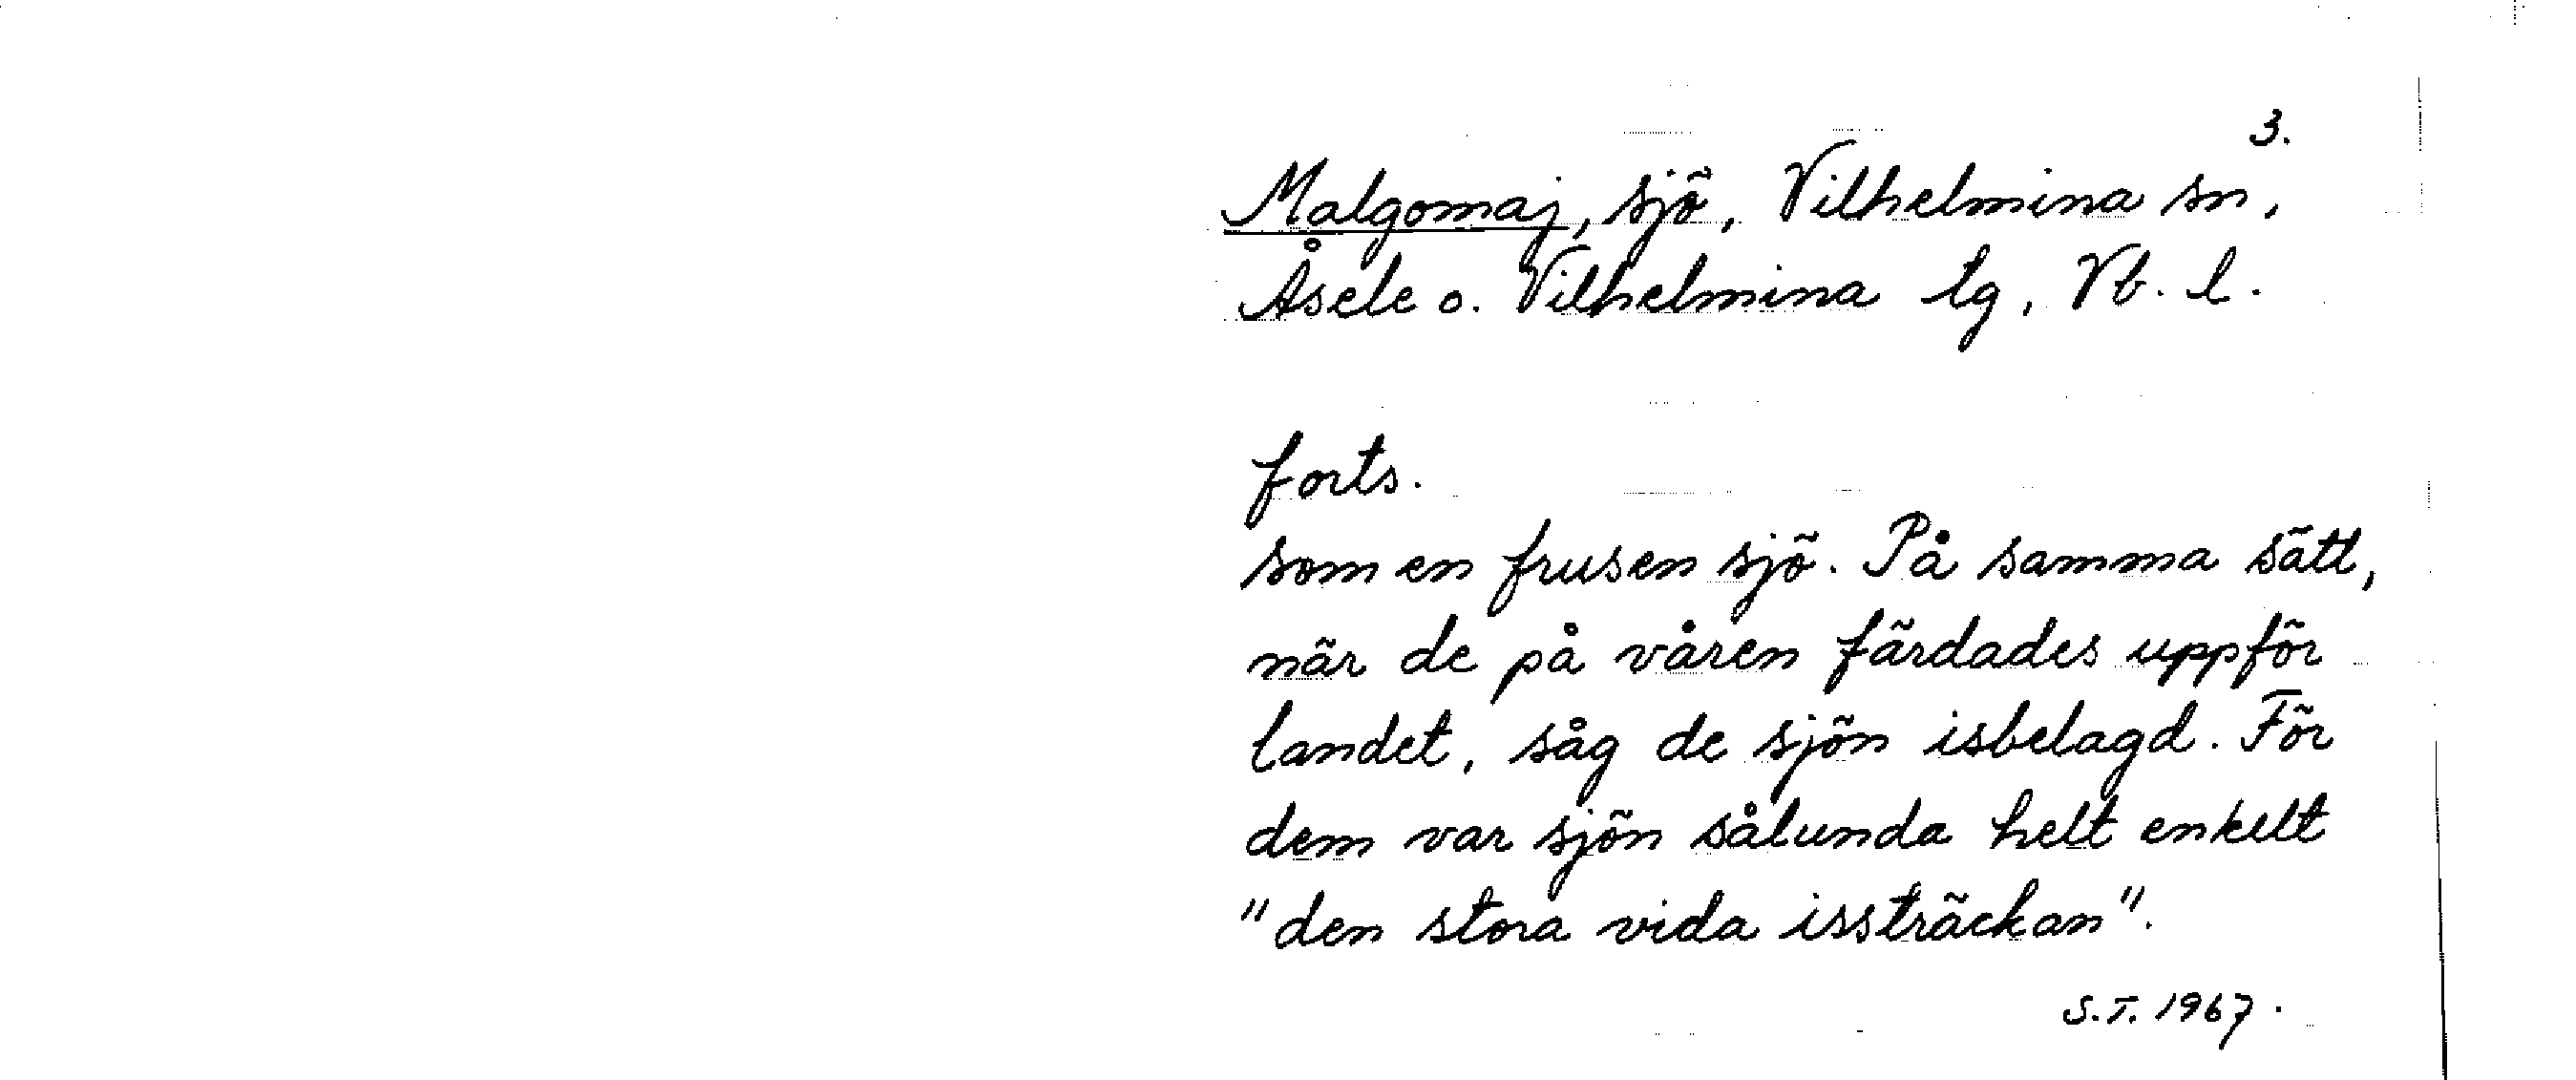 3.
Malgomaj, sjö, Vilhelmina sn,
Åsele o. Vilhelmina tg, Vb. l.
forts.
som en frusen sjö. På samma sätt,
när de på våren färdades uppför
landet, såg de sjön isbelagd. För
dem var sjön sålunda helt enkelt
"den stora vida issträckan".
S.T. 1967.